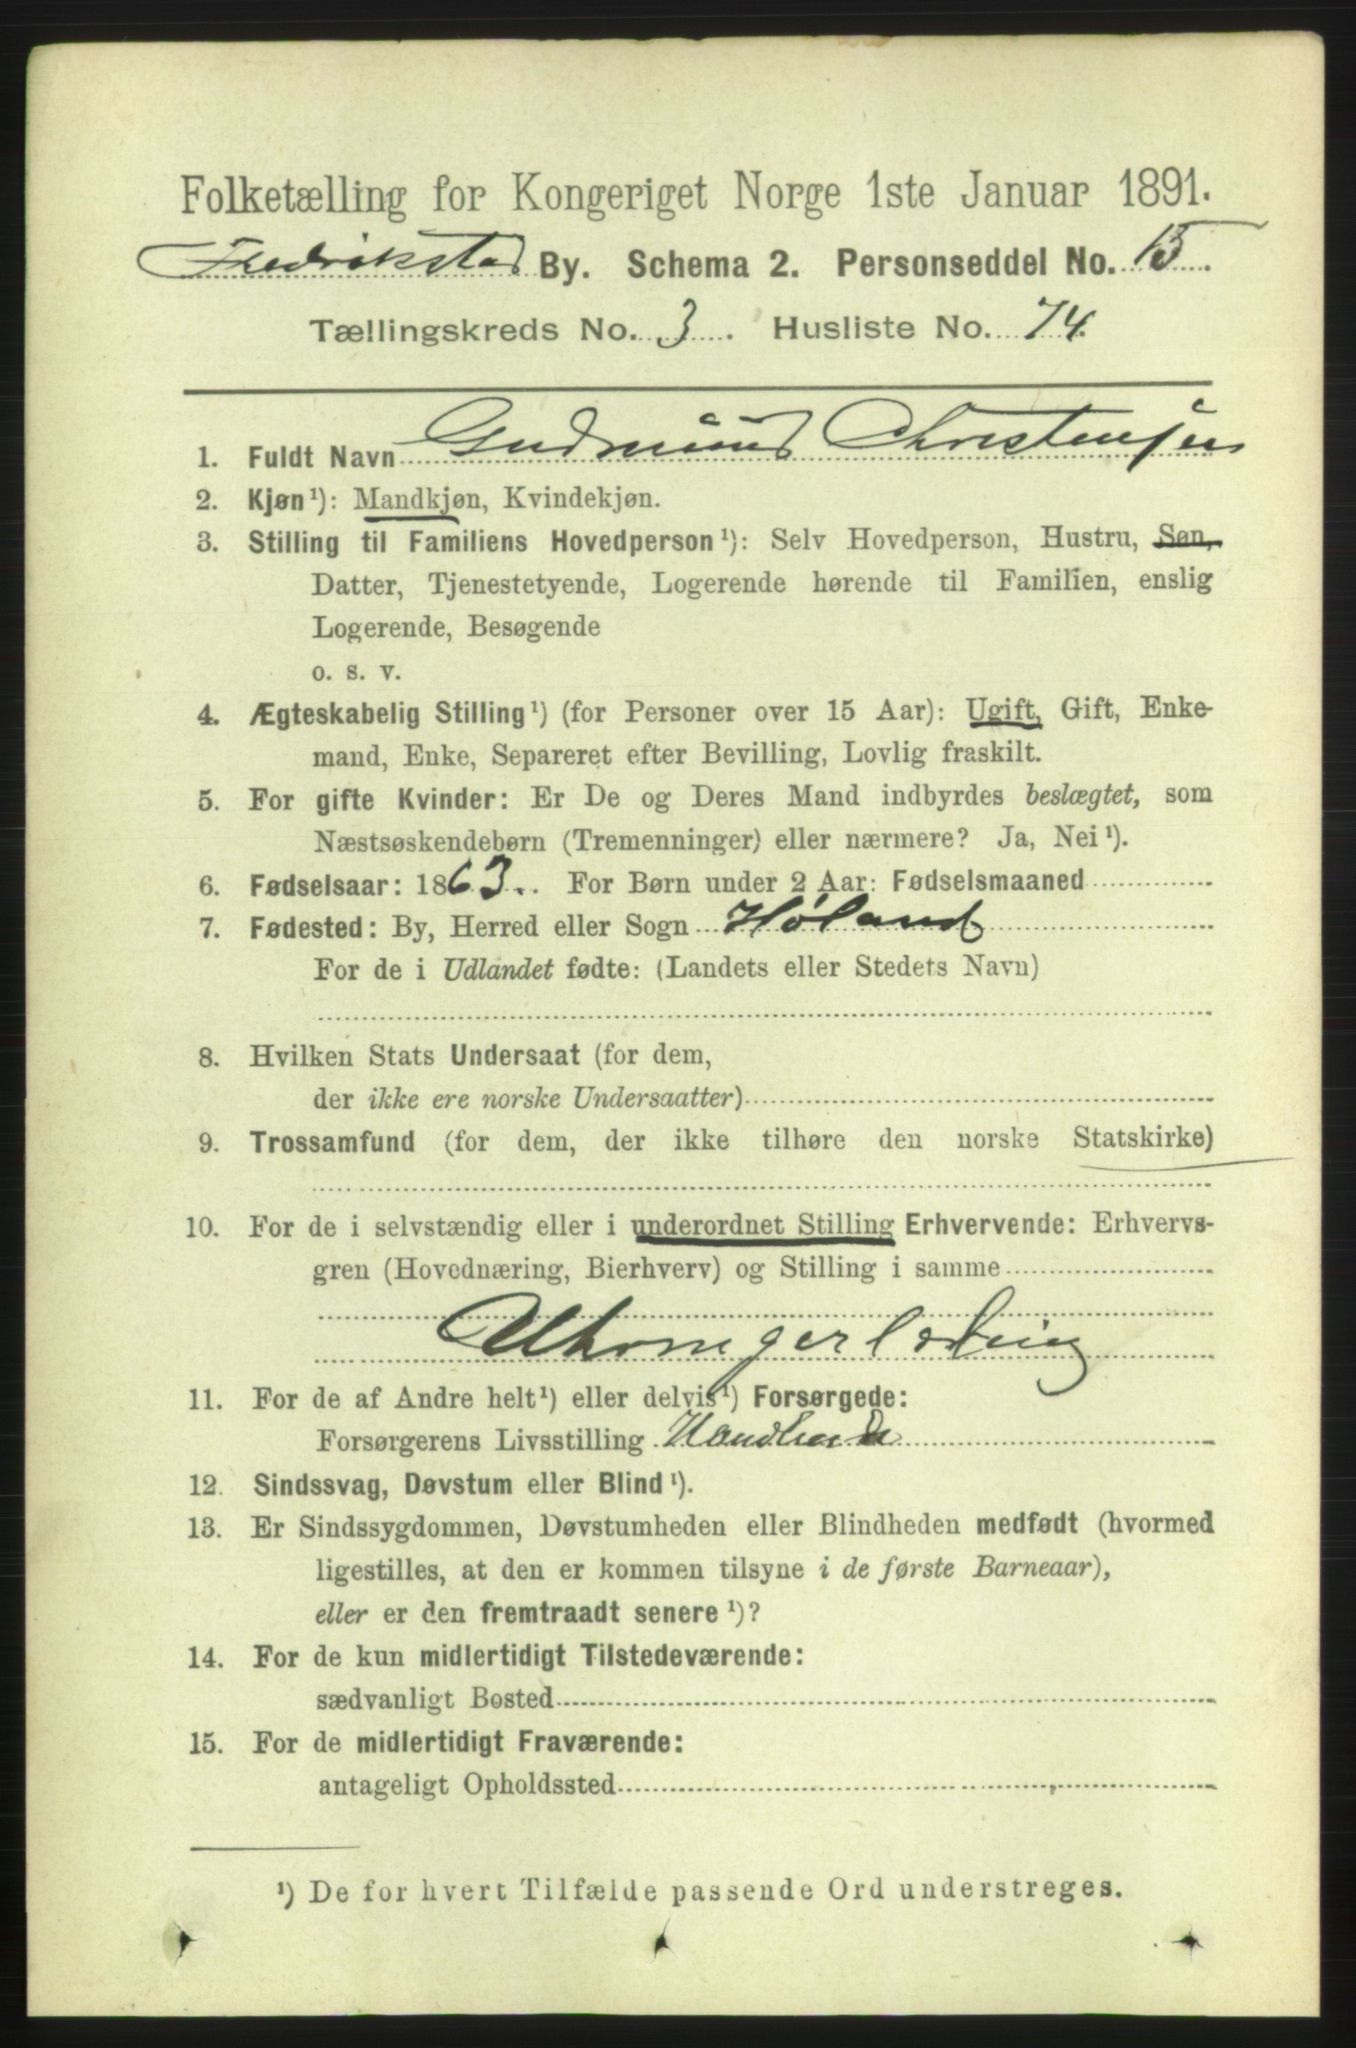 Folketælling for Kongeriget Norge 1ste Januar 1891.
Fredrikstad By. Schema 2. Personseddel No. 15.
Tællingskreds No. 3. Husliste No. 74.
1. Fuldt Navn Gudmund Christensen
2. Kjøn¹): Mandkjøn, Kvindekjøn.
3. Stilling til Familiens Hovedperson¹): Selv Hovedperson, Hustru, Søn,
Datter, Tjenestetyende, Logerende hørende til Familien, enslig
Logerende, Besøgende
o. s. v.
4. Ægteskabelig Stilling¹) (for Personer over 15 Aar): Ugift, Gift, Enke-
mand, Enke, Separeret efter Bevilling, Lovlig fraskilt.
5. For gifte Kvinder: Er De og Deres Mand indbyrdes beslægtet, som
Næstsøskendebørn (Tremenninger) eller nærmere? Ja, Nei¹).
6. Fødselsaar: 1863. For Børn under 2 Aar: Fødselsmaaned
7. Fødested: By, Herred eller Sogn Høland
For de i Udlandet fødte: (Landets eller Stedets Navn)
8. Hvilken Stats Undersaat (for dem,
der ikke ere norske Undersaatter)
9. Trossamfund (for dem, der ikke tilhøre den norske Statskirke)
10. For de i selvstændig eller i underordnet Stilling Erhvervende: Erhvervs-
gren (Hovednæring, Bierhverv) og Stilling i samme
11. For de af Andre helt¹) eller delvis¹) Forsørgede:
Forsørgerens Livsstilling Handlende
12. Sindssvag, Døvstum eller Blind¹).
13. Er Sindssygdommen, Døvstumheden eller Blindheden medfødt (hvormed
ligestilles, at den er kommen tilsyne i de første Barneaar),
eller er den fremtraadt senere¹)?
14. For de kun midlertidigt Tilstedeværende:
sædvanligt Bosted
15. For de midlertidigt Fraværende:
antageligt Opholdssted
¹) De for hvert Tilfælde passende Ord understreges.